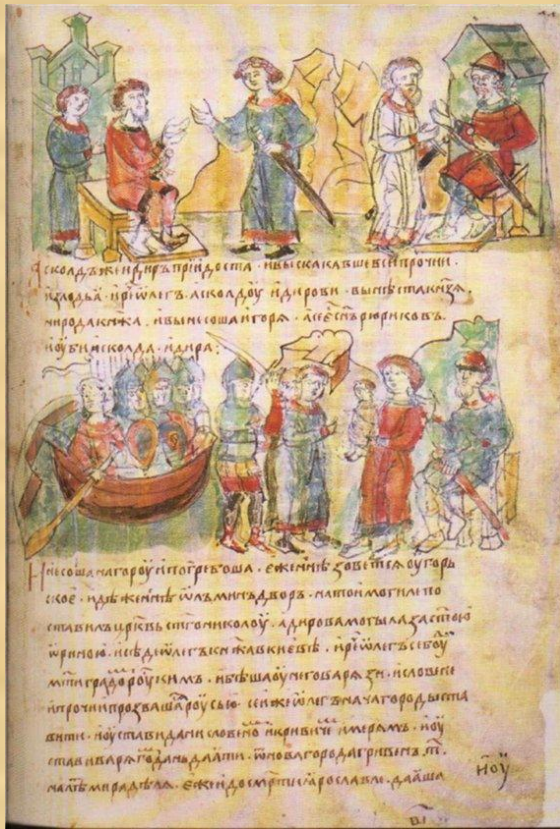 Асколдъ же и диръ приидоста · ивыскакавше вси прочии ·
излодьа · ире ѡлегъ · асколдоу идирови · вы нѣста кнѧзѧ ·
ни рода кнѧжа · ивынесоша игорѧ · а се є снъ рюриковъ ·
и оубиша асколда идира :
И несоша нагороу ипогребоша · єже ннѣ зоветсѧ оугорь
скоє · идѣже ннѣ ѡлъминъ дворъ · натои могиле по
ставилъ црквь стго николоу · а дирова могыла за стою
ѡриною · исѣде ѡлегъ кнѧжа вкиєвѣ · ире ѡлегъ се боу
мти градо роускимъ · ибѣша оу него варѧзи · исловене
ипрочии прозвашасѧ роусью · се же ѡлегъ нача городы ста
вити · иоустави дани словено икривиче имерѧмъ · иоу
стави варѧго дань даѧти · ѿ новагорода гривенъ · т ·
налѣ мира дѣлѧ · єже идо смрти ӕрославле · даӕша
ноу